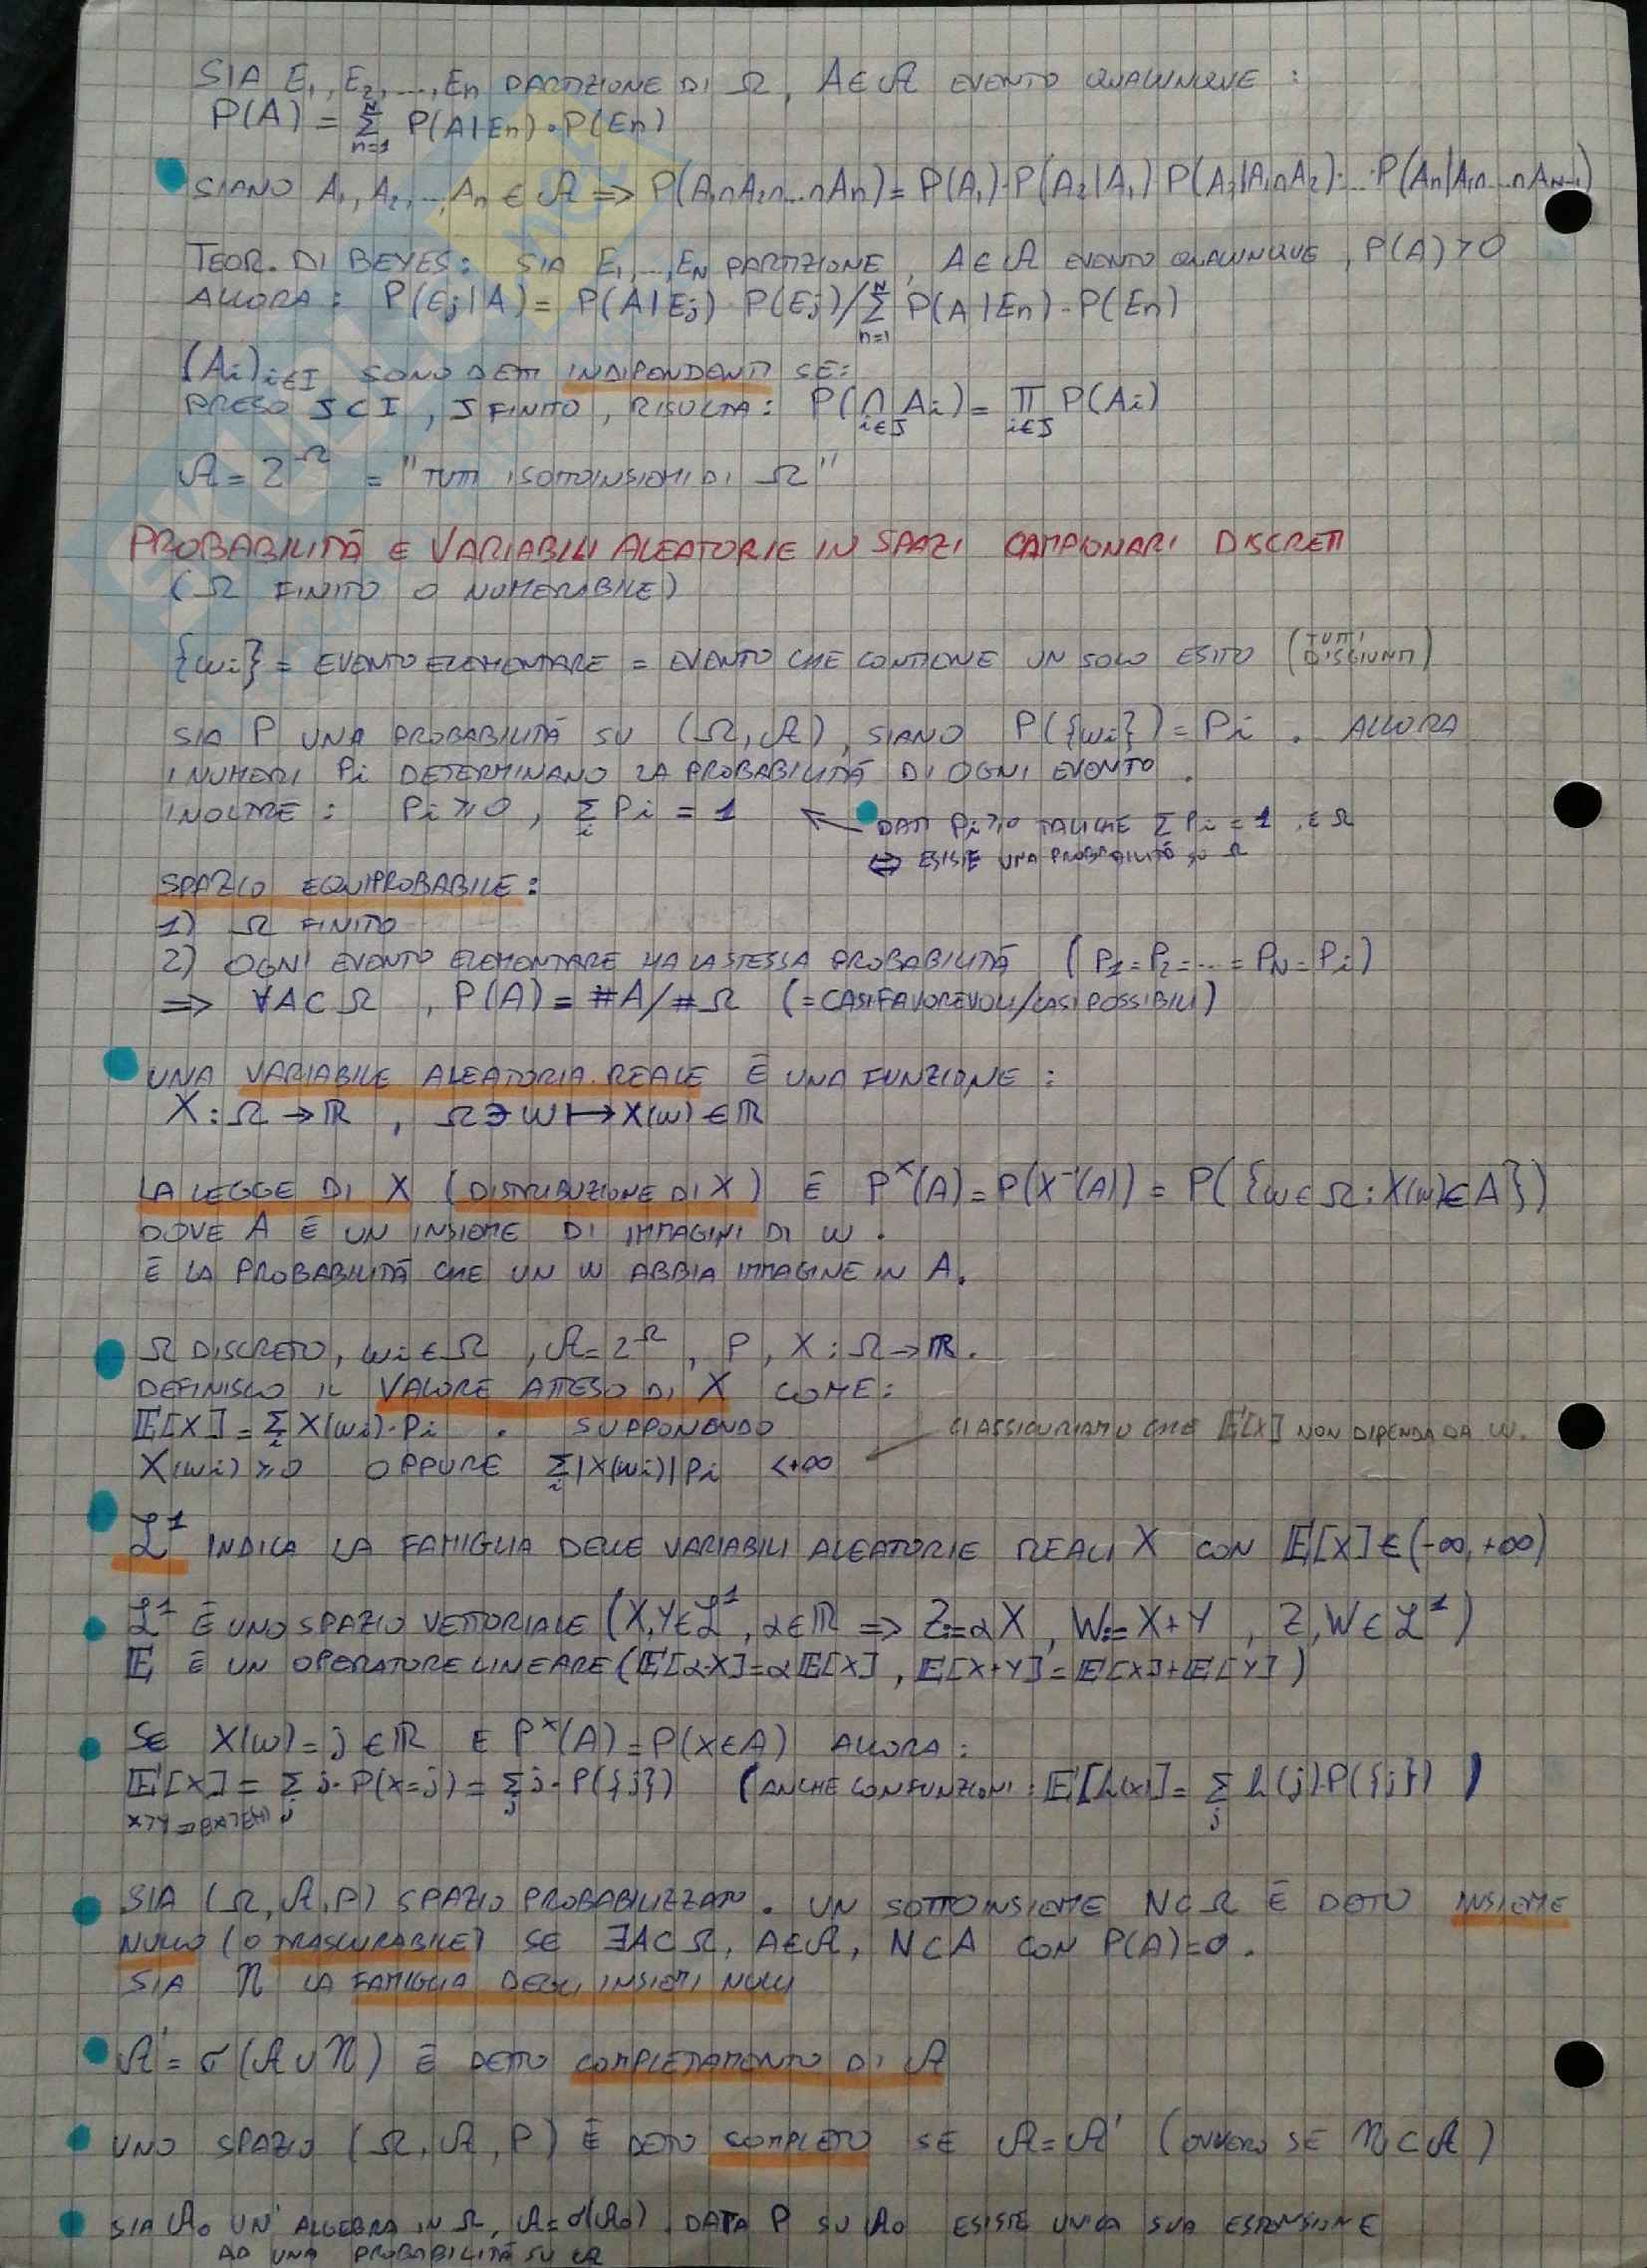 SIA E₁, E₂, ..., Eₙ PARTIZIONE DI Ω, A∈𝒜 EVENTO QUALUNQUE :
P(A) = Σₙ₌₁ᴺ P(A|Eₙ)·P(Eₙ)
SIANO A₁, A₂, ..., Aₙ ∈ 𝒜 ⇒ P(A₁∩A₂∩...∩Aₙ) = P(A₁)·P(A₂|A₁)·P(A₃|A₁∩A₂)·...·P(Aₙ|A₁∩...∩Aₙ₋₁)
TEOR. DI BEYES : SIA E₁, ..., E_N PARTIZIONE, A∈𝒜 EVENTO QUALUNQUE, P(A)>0
ALLORA : P(Eⱼ|A) = P(A|Eⱼ)·P(Eⱼ)/Σₙ₌₁ᴺ P(A|Eₙ)·P(Eₙ)
(Aᵢ)ᵢ∈I SONO DETTI INDIPENDENTI SE:
PRESO J⊂I, J FINITO, RISULTA : P(∩ᵢ∈J Aᵢ) = Πᵢ∈J P(Aᵢ)
𝒜 = 2^Ω = "TUTTI I SOTTOINSIEMI DI Ω"
PROBABILITÀ E VARIABILI ALEATORIE IN SPAZI CAMPIONARI DISCRETI
(Ω FINITO O NUMERABILE)
{ωᵢ} = EVENTO ELEMENTARE = EVENTO CHE CONTIENE UN SOLO ESITO (TUTTI DISGIUNTI)
SIA P UNA PROBABILITÀ SU (Ω, 𝒜), SIANO P({ωᵢ}) = Pᵢ . ALLORA
I NUMERI Pᵢ DETERMINANO LA PROBABILITÀ DI OGNI EVENTO .
INOLTRE : Pᵢ ≥ 0 , Σᵢ Pᵢ = 1 ← DATI Pᵢ ≥ 0 TALI CHE Σ Pᵢ = 1 , ∈ Ω
⇔ ESISTE UNA PROBABILITÀ SU Ω
SPAZIO EQUIPROBABILE :
1) Ω FINITO
2) OGNI EVENTO ELEMENTARE HA LA STESSA PROBABILITÀ (P₁=P₂=...=P_N=Pᵢ)
⇒ ∀A⊂Ω , P(A) = #A/#Ω (= CASI FAVOREVOLI/CASI POSSIBILI)
UNA VARIABILE ALEATORIA REALE È UNA FUNZIONE :
X : Ω → ℝ , Ω∋ω ↦ X(ω) ∈ ℝ
LA LEGGE DI X (DISTRIBUZIONE DI X) È Pˣ(A) = P(X⁻¹(A)) = P({ω∈Ω : X(ω)∈A})
DOVE A È UN INSIEME DI IMMAGINI DI ω .
È LA PROBABILITÀ CHE UN ω ABBIA IMMAGINE IN A.
Ω DISCRETO, ωᵢ∈Ω , 𝒜 = 2^Ω , P, X : Ω → ℝ .
DEFINISCO IL VALORE ATTESO DI X COME :
𝔼[X] = Σᵢ X(ωᵢ)·Pᵢ . SUPPONENDO CI ASSICURIAMO CHE 𝔼[X] NON DIPENDA DA ω.
X(ωᵢ) ≥ 0 OPPURE Σᵢ |X(ωᵢ)| Pᵢ < +∞
ℒ¹ INDICA LA FAMIGLIA DELLE VARIABILI ALEATORIE REALI X CON 𝔼[X] ∈ (-∞, +∞)
ℒ¹ È UNO SPAZIO VETTORIALE (X,Y∈ℒ¹, α∈ℝ ⇒ Z:=αX , W:=X+Y , Z,W∈ℒ¹)
𝔼 È UN OPERATORE LINEARE (𝔼[α·X]=α𝔼[X] , 𝔼[X+Y]=𝔼[X]+𝔼[Y])
SE X(ω) = j ∈ ℝ E Pˣ(A) = P(X∈A) ALLORA :
𝔼[X] = Σⱼ j·P(X=j) = Σⱼ j·P({j}) (ANCHE CON FUNZIONI : 𝔼[h(x)] = Σⱼ h(j)·P({j}))
SIA (Ω, 𝒜, P) SPAZIO PROBABILIZZATO . UN SOTTOINSIEME N⊂Ω È DETTO INSIEME
NULLO (O TRASCURABILE) SE ∃A⊂Ω, A∈𝒜, N⊂A CON P(A)=0 .
SIA 𝒩 LA FAMIGLIA DEGLI INSIEMI NULLI
𝒜' = σ(𝒜∪𝒩) È DETTO COMPLETAMENTO DI 𝒜
UNO SPAZIO (Ω, 𝒜, P) È DETTO COMPLETO SE 𝒜=𝒜' (OVVERO SE 𝒩⊂𝒜)
SIA 𝒜₀ UN'ALGEBRA IN Ω, 𝒜=σ(𝒜₀) . DATA P SU 𝒜₀ ESISTE UNICA SUA ESTENSIONE
AD UNA PROBABILITÀ SU 𝒜